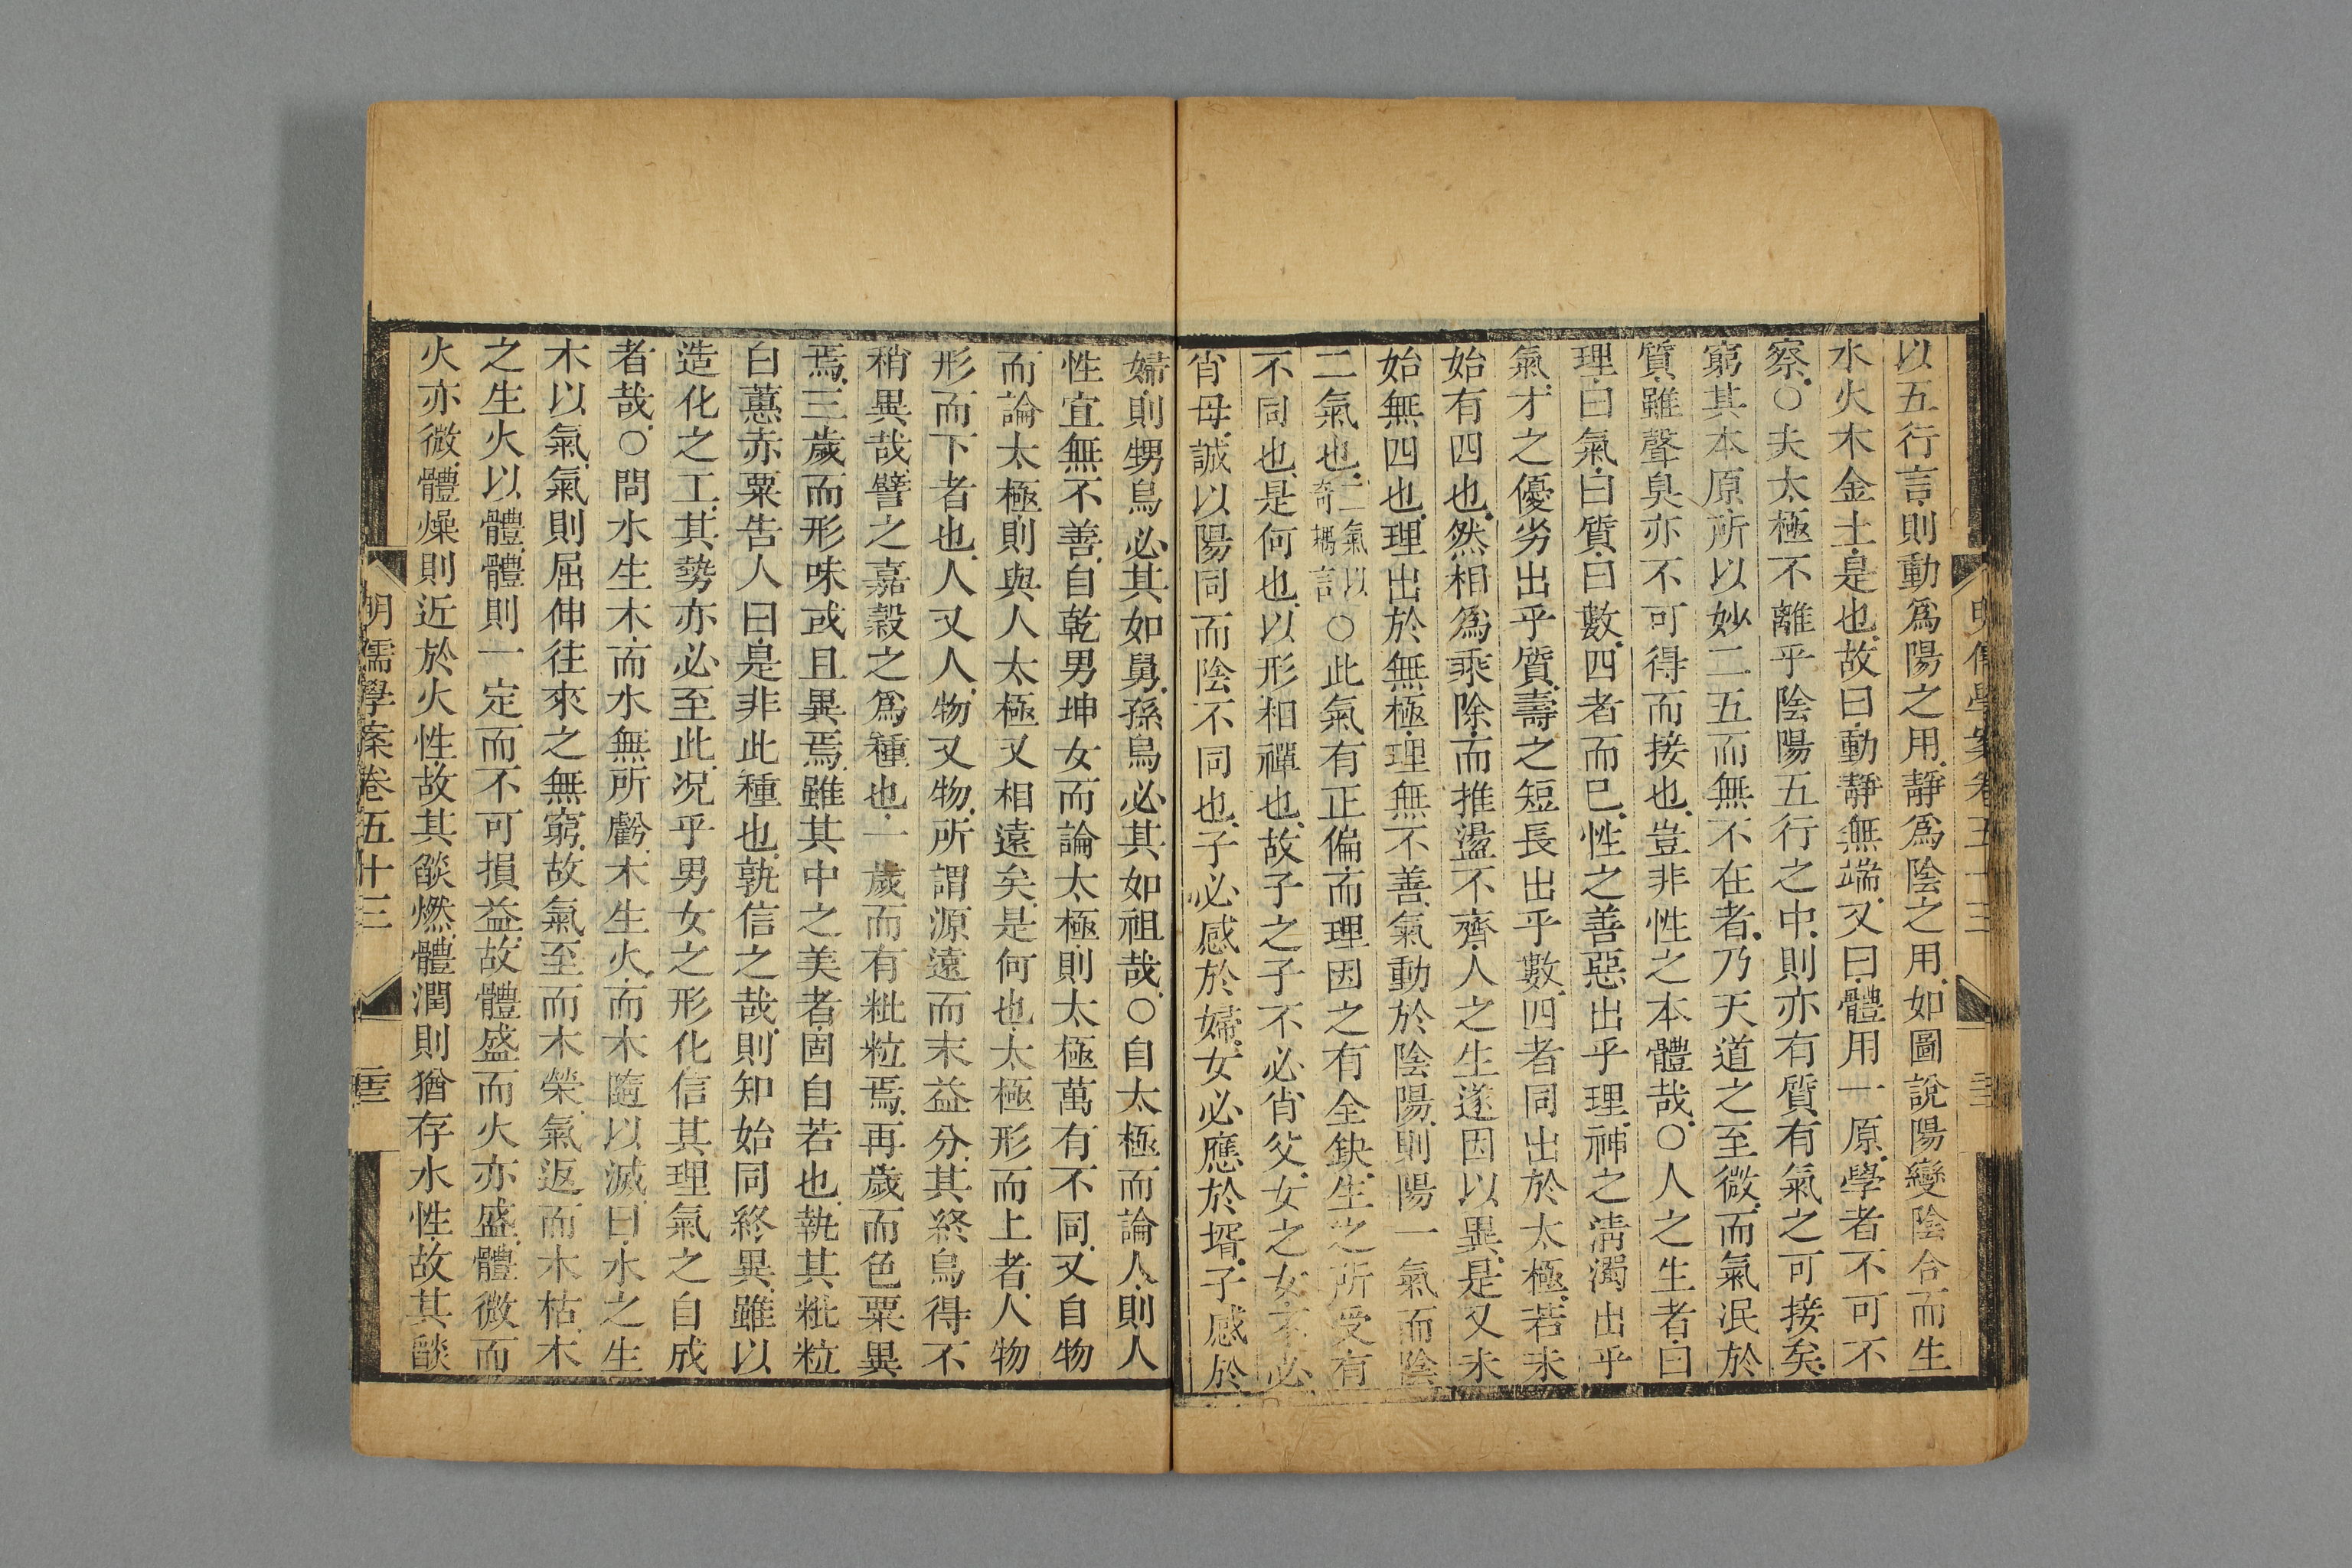 以五行言則動爲陽之用靜爲陰之用如圖說陽變陰合而生
水火木金土是也故曰動靜無端又曰體用一原學者不可不
察○夫太極不離乎陰陽五行之中則亦有質有氣之可接矣
窮其本原所以妙二五而無不在者乃天道之至微而氣泯於
質雖聲臭亦不可得而接也豈非性之本體哉○人之生者曰
理曰氣曰質曰數四者而已性之善惡出乎理神之淸濁出乎
氣才之優劣出乎質壽之短長出乎數四者同出於太極若未
始有四也然相爲乘除而推盪不齊人之生遂因以異是又未
始無四也理出於無極理無不善氣動於陰陽則陽一氣而陰
二氣也二氣以奇耦言○此氣有正偏而理因之有全缺生之所受有
不同也是何也以形相禪也故子之子不必肖父女之女不必
肖母誠以陽同而陰不同也子必感於婦女必應於壻子感於
婦則甥烏必其如舅孫烏必其如祖哉○自太極而論人則人
性宜無不善自乾男坤女而論太極則太極萬有不同又自物
而論太極則與人太極又相遠矣是何也太極形而上者人物
形而下者也人又人物又物所謂源遠而末益分其終烏得不
稍異哉譬之嘉穀之爲種也一歲而有粃粒焉再歲而色粟異
焉三歲而形味或且異焉雖其中之美者固自若也執其粃粒
白蕙赤粟告人曰是非此種也孰信之哉則知始同終異雖以
造化之工其勢亦必至此况乎男女之形化信其理氣之自成
者哉○問水生木而水無所虧木生火而木隨以滅曰水之生
木以氣氣則屈伸往來之無窮故氣至而木榮氣返而木枯木
之生火以體體則一定而不可損益故體盛而火亦盛體微而
火亦微體燥則近於火性故其燄燃體潤則猶存水性故其燄
明儒學案卷五十三